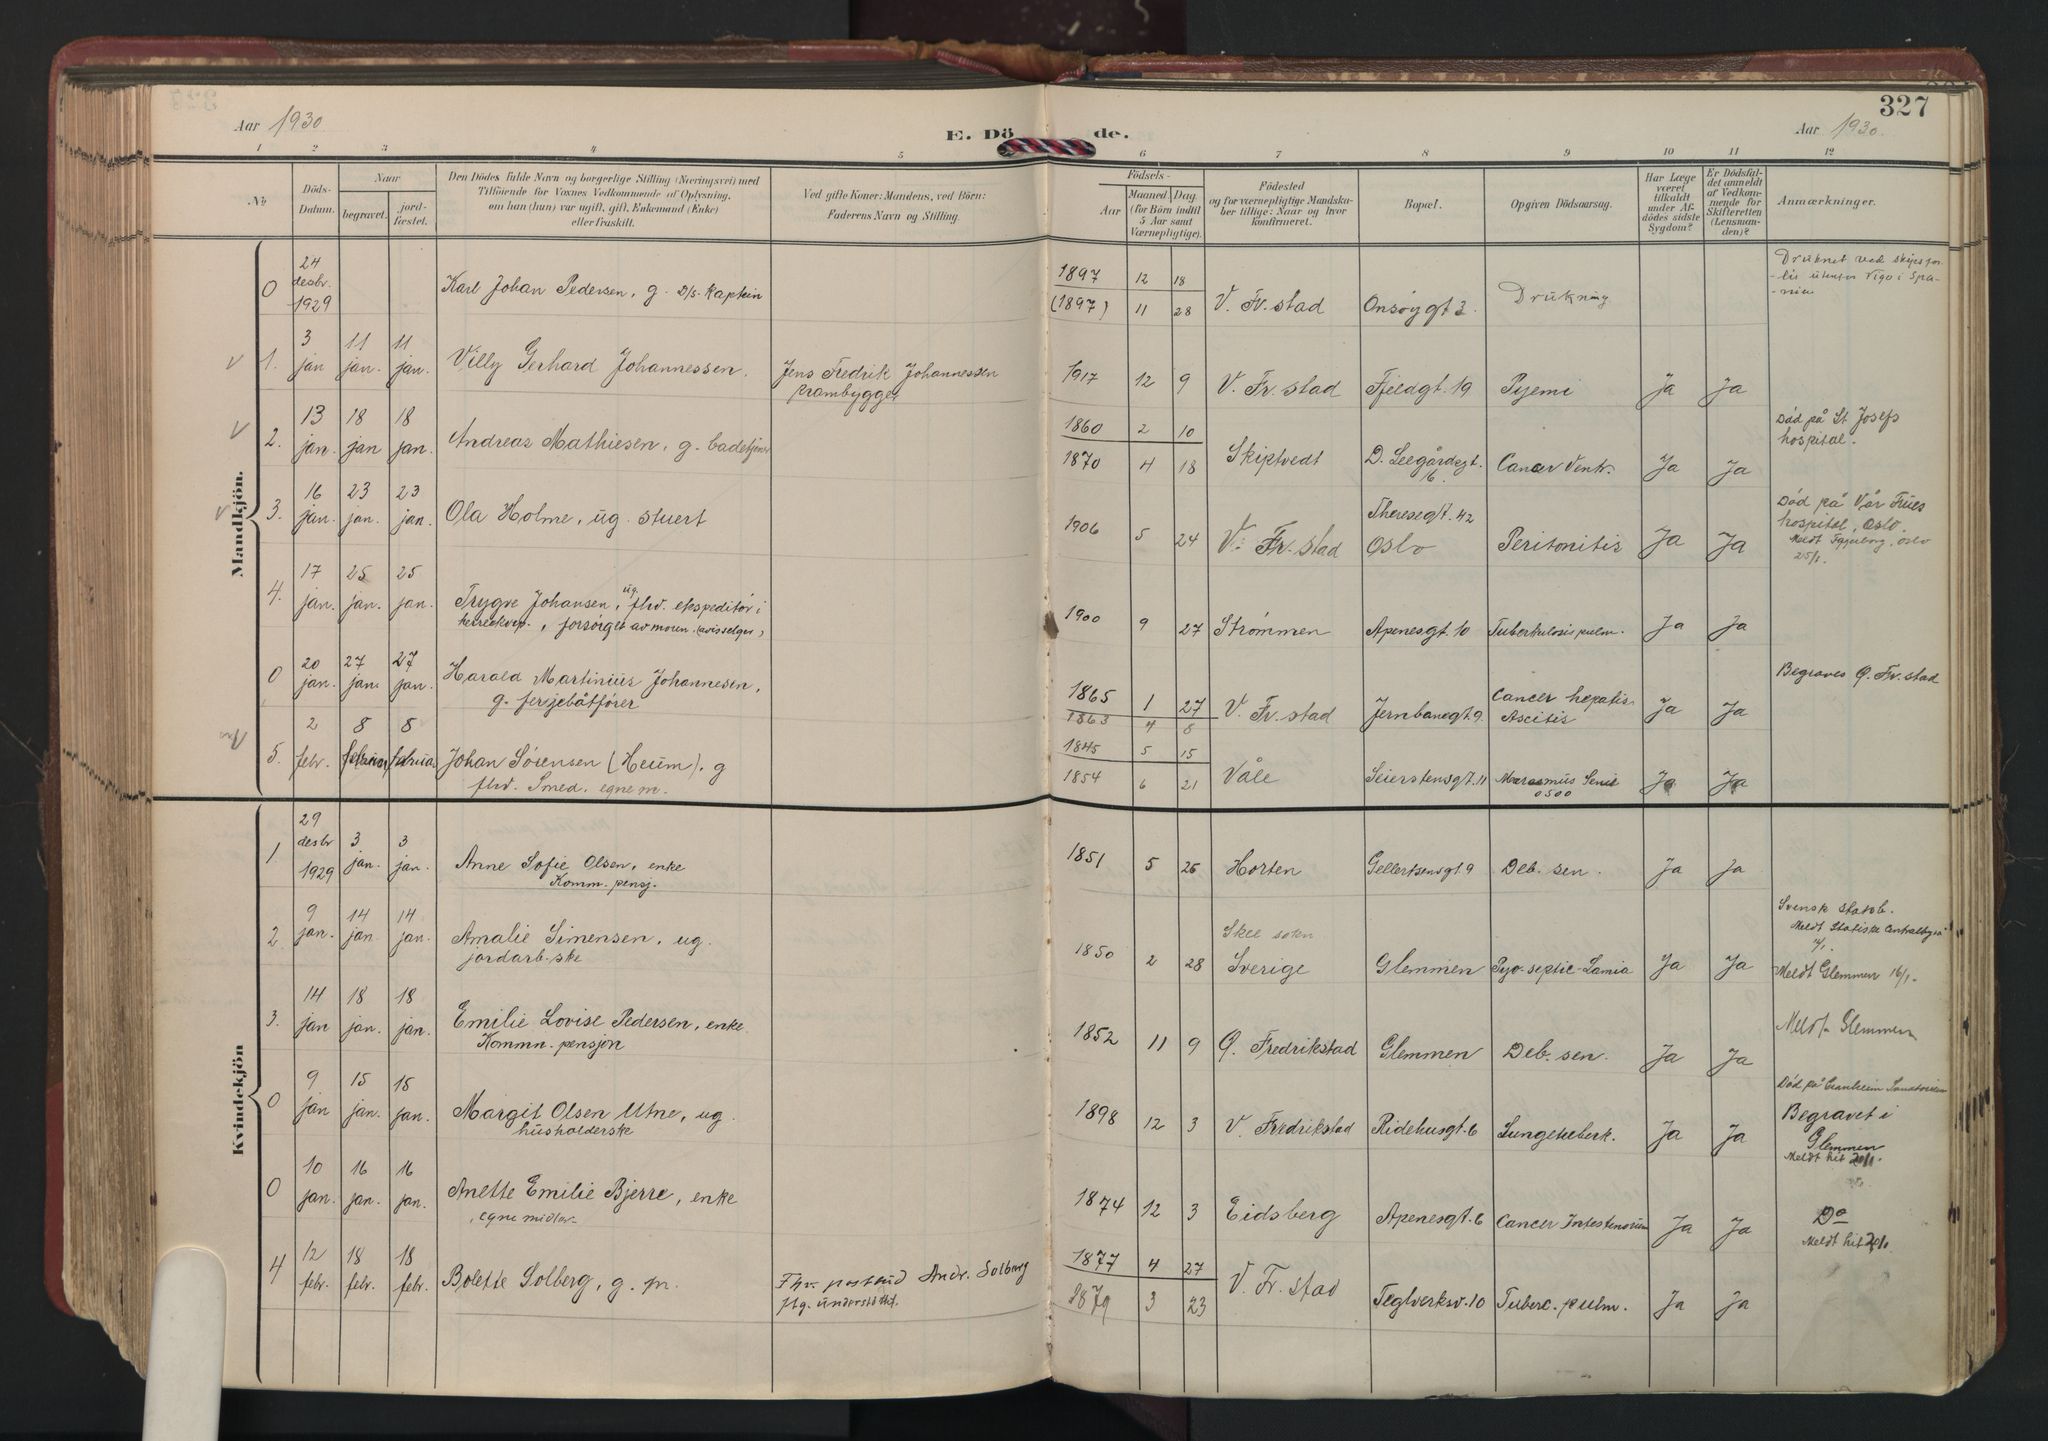 327
Aar 1930
E. Dö de.
Aar 1930.
1 2 3 4 5 6 7 8 9 10 11 12
No
Döds-
Datum.
Naar
begravet.
jord-
fæstet.
Den Dödes fulde Navn og borgerlige Stilling (Næringsvei) med
Tilföiende for Voxnes Vedkommende af Oplysning,
om han (hun) var ugift, gift, Enkemand (Enke)
eller fraskilt.
Ved gifte Koner: Mandens, ved Börn:
Faderens Navn og Stilling.
Födsels-
Aar
Maaned. Dag.
(for Börn indtil
5 Aar samt
Værnepligtige).
Födested
og for værnepligtige Mandsku-
ber tillige: Naar og hvor
konfirmeret.
Bopæl.
Opgiven Dödsaarsag.
Har Læge
været
tilkaldt
under Af-
dödes sidste
Sygdom?
Er Dödsfal-
det anmeldt
af Vedkom-
mende for
Skifteretten
(Lensman-
den)?
Anmærkninger.
Mandkjön.
0 24 desbr. 1929 Karl Johan Pedersen, g. D/s. Kaptein 1897 12 18
(1897) 11 28 V. Fr. stad Onsøygt 3. Drukning
Druknet ved skipsfor-
-lis utenfor Vigo i Spa-
-nien
1. 3 jan 11 jan. 11 jan. Villy Gerhard Johannessen. Jens Fredrik Johannessen
prambygger
1917 12 9 V. Fr. stad Fjeldgt. 19 Pyemi Ja Ja
2. 13 jan. 18 jan 18 jan. Andreas Mathiesen, g. badetjener 1860 2 10
1870 4 18 Skiptvedt D. Leegårdsgt. 16. Cancer Ventr. Ja Ja
Död på St Josefs
hospital.
3. 16 jan. 23 jan. 23 jan. Ola Holme, ug. stuert
1906 5 24 V. Fr. stad Theresegt. 42
Oslo Peritonitis Ja Ja
Död på Vår Frues
hospital, Oslo.
Meldt Fagerborg, Oslo
25/1.
4. 17 jan. 25 jan. 25 jan. Trygve Johansen, ug. fhv. ekspeditör i
herreekvip., forsörget av moren. (avisselger)
1900 9 27 Strömmen Apenesgt. 10 Tuberkulosis pulm. Ja Ja
0 20 jan. 27 jan. 27 jan. Harald Martinius Johannesen,
g. ferjebåtförer
1865 1 27
1863 4 8 V. Fr. stad Jernbanegt. 9. Cancer hepatis.
Ascitis Ja Ja
Begraves Ø. Fr. stad
5. 2 febr. 8 februar 8 februar Johan Sörensen (Heum). g
fhv. Smed. egne m.
1845 5 15
1854 6 21 Våle Seierstensgt. 11 Marasmus Senil
Ja Ja
Kvindekjön
1 29 desbr 1929 3 jan. 3 jan. Anne Sofie Olsen, enke
Komm. pensj.
1851 5 26 Horten Gellertsensgt 9 Deb. sen. Ja Ja
2. 9 jan. 14 jan 14 jan. Amalie Simensen, ug.
jordarb-ske
1850 2 28 Skee sokn
Sverige Glemmen Pyo-septic- Ja Ja
Svensk statsb.
Meldt Statistiske Centralbyrå
Meldt Glemmen 16/1.
3. 14 jan 18 jan. 18 jan. Emilie Lovise Pedersen, enke
Komm. pensjon
1852 11 9 Ø. Fredrikstad Glemmen Deb. sen. Ja Ja
Meldt Glemmen
0 9 jan 15 jan. 15 jan. Margit Olsen Utne, ug.
husholderske
1898 12 3 V. Fredrikstad Ridehusgt. 6 Lungetuberk. Ja Ja
Död på Granheim Sanatorium
Begravet i
Glemmen
Meldt hit 20/1.
0 10 jan. 16 jan. 16 jan. Anette Emilie Bjerre, enke
, egne midler
1874 12 3 Eidsberg Apenesgt. 6 Cancer Intestinorum Ja Ja
Do
Meldt hit 20/1.
4 12 febr. 18 febr. 18 febr. Bolette Solberg, g. m. Fhv. postbud Andr. Solberg
Htg. understöttet.
1877 4 27
1879 3 23 V. Fr. stad Teglverksv. 10 Tuberc. pulm. Ja Ja